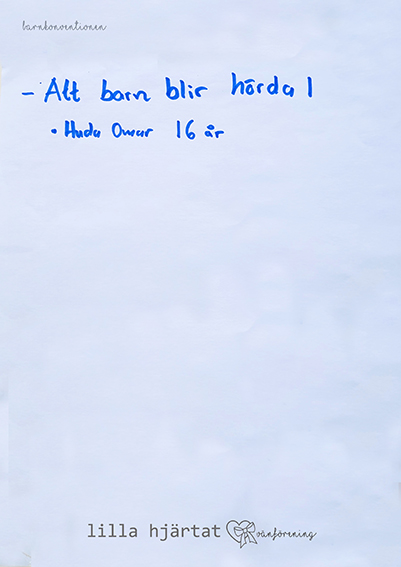 barnkonventionen
- Att barn blir hörda!
• Huda Omar 16 år
lilla hjärtat vänförening